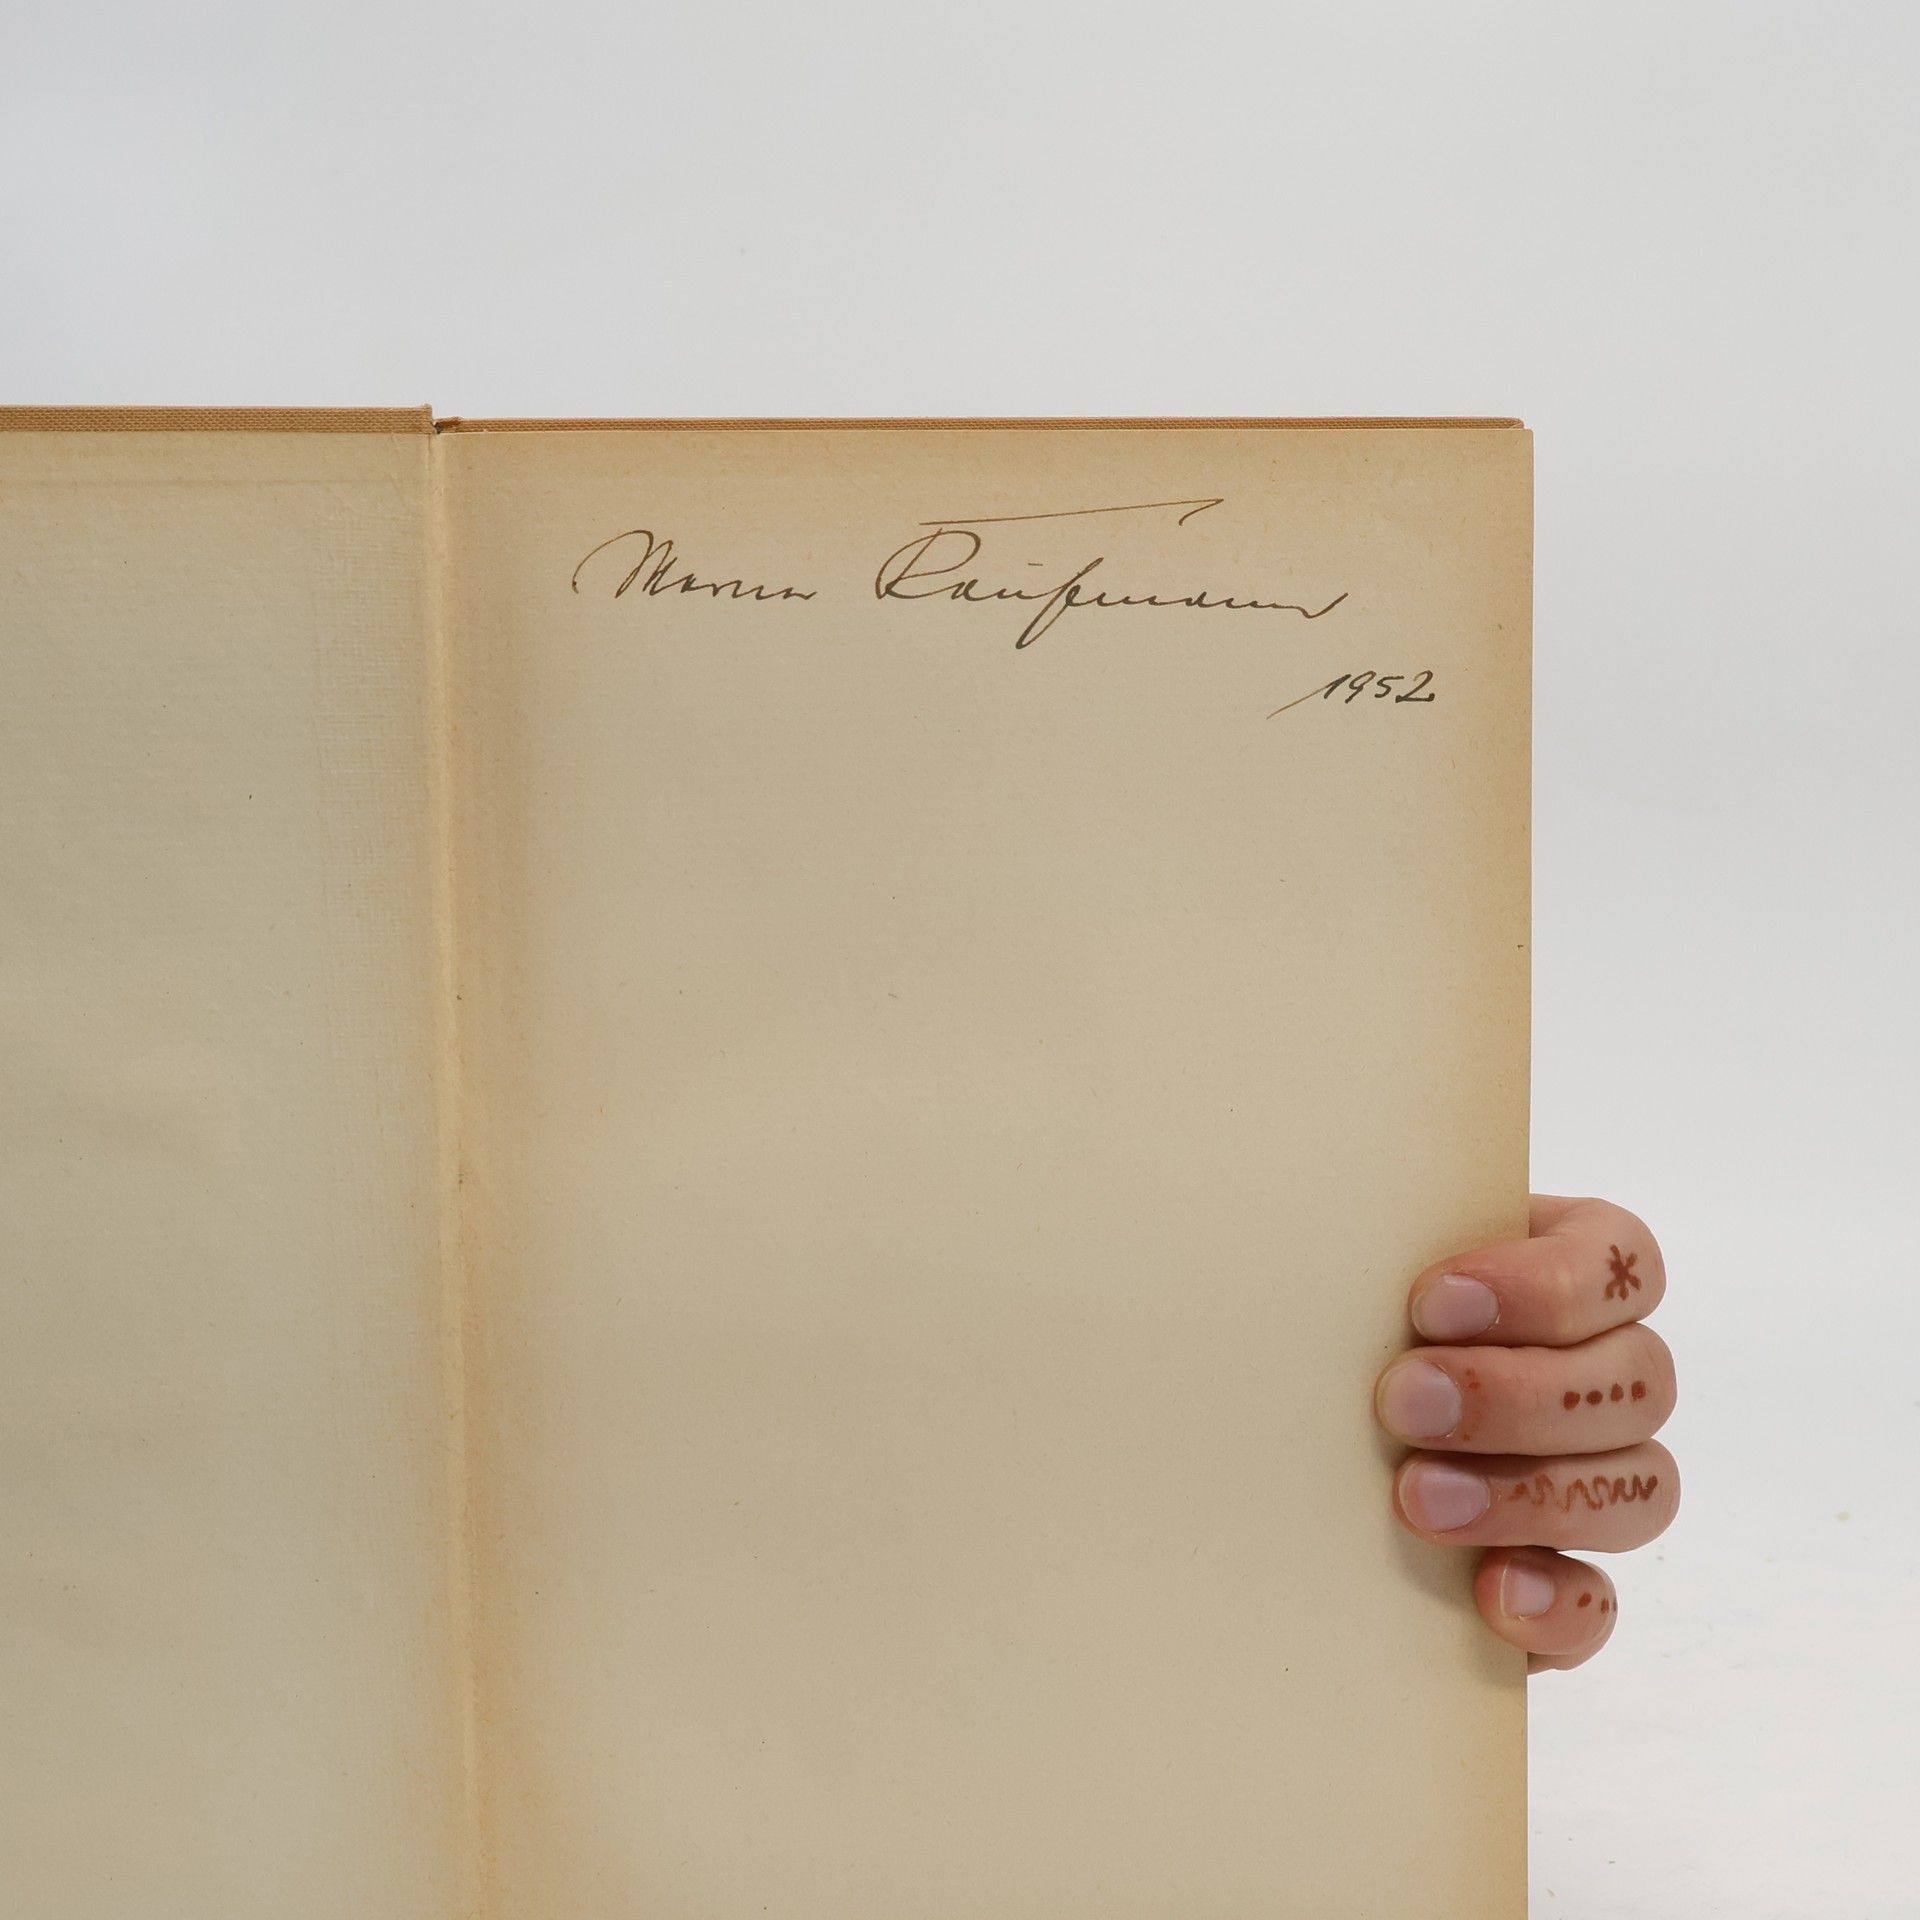 Marna Kaufmann
1952